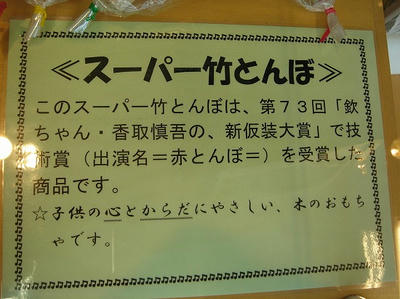 ≪スーパー竹とんぼ≫
このスーパー竹とんぼは、第７３回「欽
ちゃん・香取慎吾の、新仮装大賞」で技
術賞（出演名＝赤とんぼ＝）を受賞した
商品です。
☆子供の心とからだにやさしい、木のおもち
ゃです。